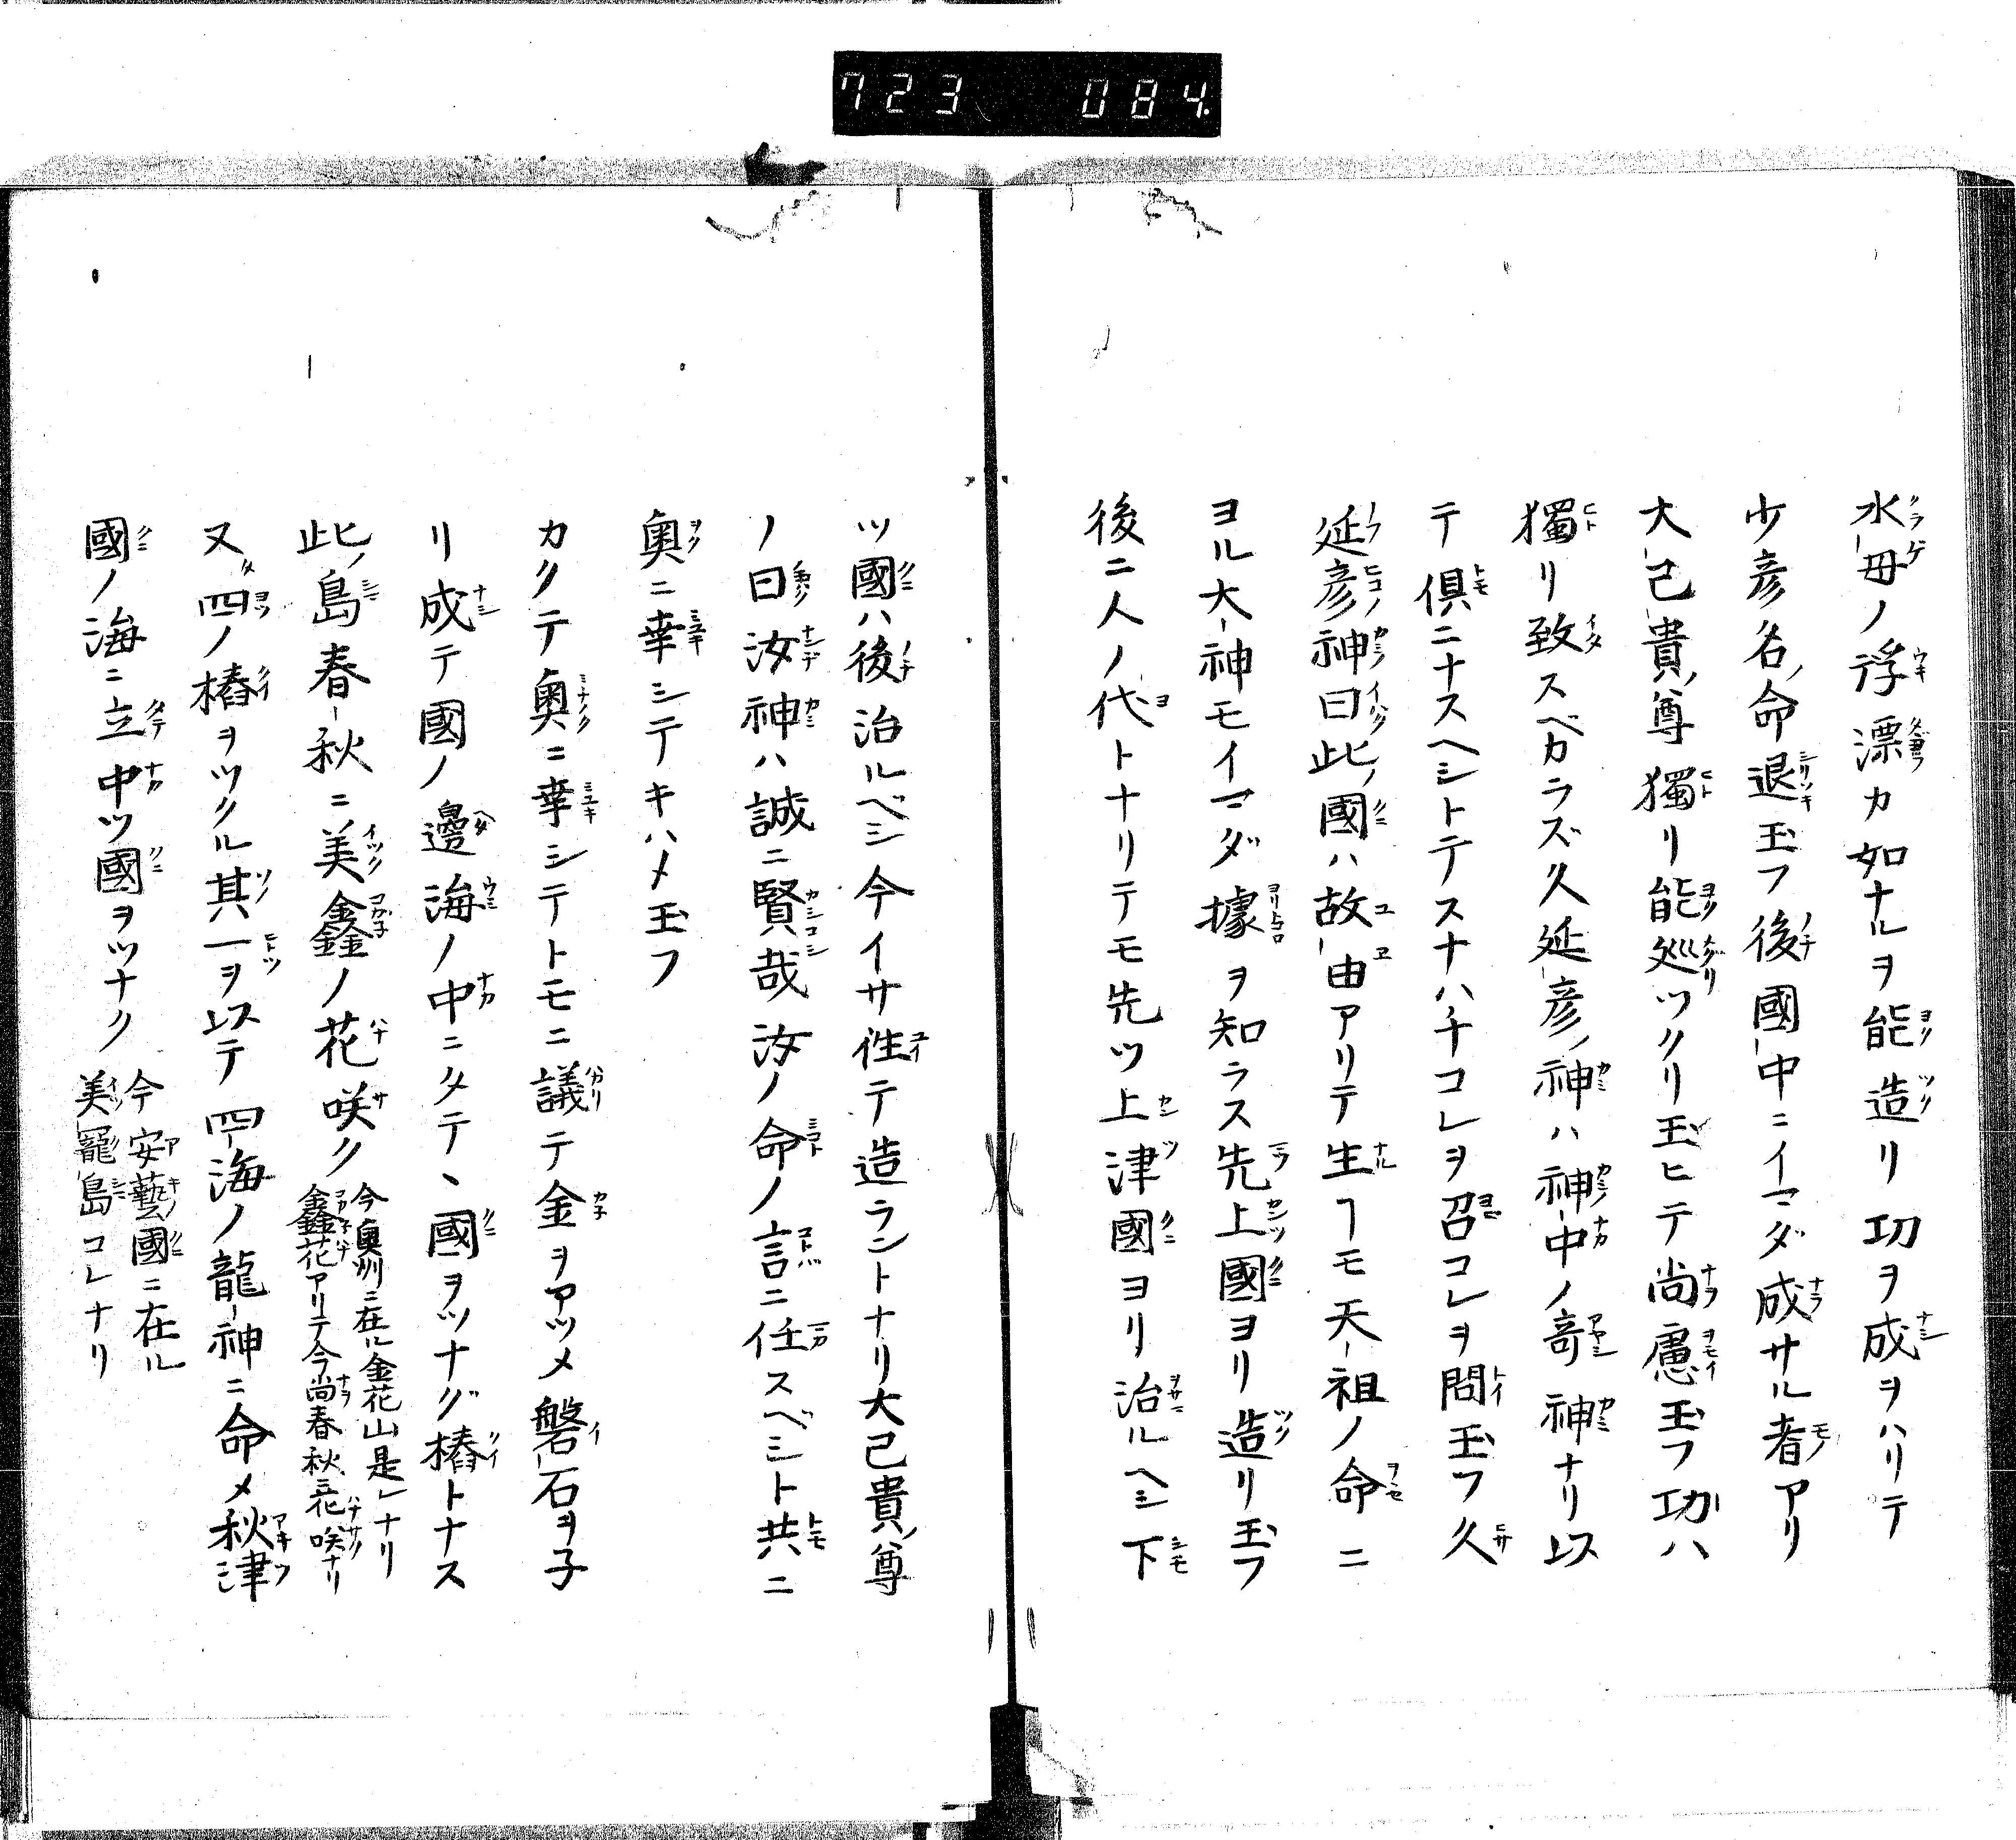 723 084.
水母ノ浮漂カ如ナルヲ能造リ功ヲ成ヲハリテ
少彦名ノ命退玉フ後國中ニイマダ成サル者アリ
大己貴ノ尊獨リ能巡ツクリ玉ヒテ尚慮玉フ功ハ
獨リ致スベカラズ久延彦ノ神ハ神中ノ竒神ナリ以
テ倶ニナスヘシトテスナハチコレヲ召コレヲ問玉フ久
延彦神曰此ノ國ハ故由アリテ生ヿモ天祖ノ命ニ
ヨル大神モイマダ據ヲ知ラス先上國ヨリ造リ玉フ
後ニ人ノ代トナリテモ先ツ上津國ヨリ治ルヘシ下
ツ國ハ後治ルベシ今イサ徃テ造ラントナリ大己貴ノ尊
ノ曰汝神ハ誠ニ賢哉汝ノ命ノ言ニ任スベシト共ニ
奥ニ幸シテキハメ玉フ
カクテ奥ニ幸シテトモニ議テ金ヲアツメ磐石ヲ子
リ成テ國ノ邊海ノ中ニタテヽ國ヲツナグ樁トナス
此ノ島春秋ニ美鑫ノ花咲ク
今奥州ニ在ル金花山是レナリ
鑫花アリテ今尚春秋ニ花咲ナリ
又四ノ樁ヲツクル其一ヲ以テ四海ノ龍神ニ命メ秋津
國ノ海ニ立中ツ國ヲツナク
今安藝國ニ在ル
美寵島コレナリ